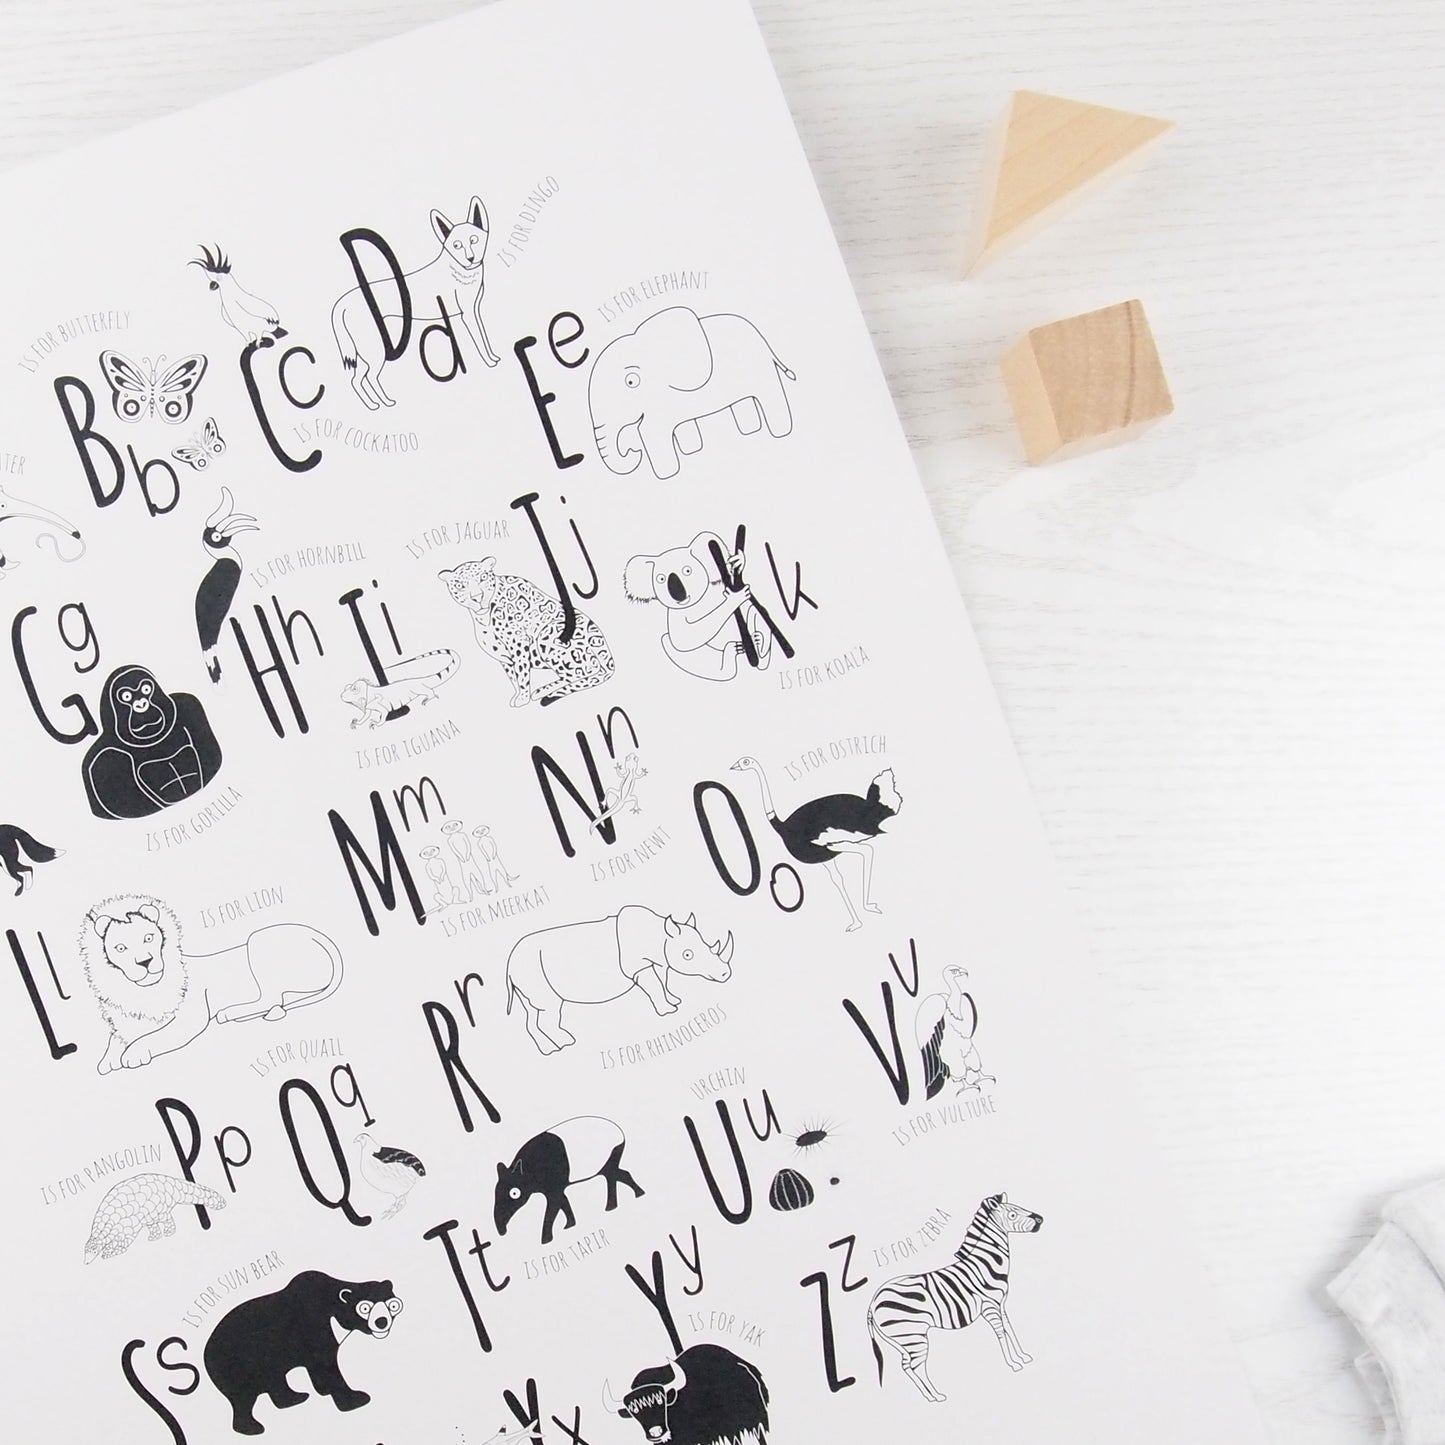 IS FOR BUTTERFLY
Bb
Cc
IS FOR COCKATOO
Dd
IS FOR DINGO
Ee
IS FOR ELEPHANT
Gg
IS FOR GORILLA
IS FOR HORNBILL
Hh
Ii
IS FOR IGUANA
IS FOR JAGUAR
Jj
Kk
IS FOR KOALA
Ll
IS FOR LION
Mm
IS FOR MEERKAT
Nn
IS FOR NEWT
Oo
IS FOR OSTRICH
IS FOR PANGOLIN
Pp
IS FOR QUAIL
Qq
Rr
IS FOR RHINOCEROS
Ss
IS FOR SUN BEAR
Tt
IS FOR TAPIR
URCHIN
Uu
Vv
IS FOR VULTURE
Xx
Yy
IS FOR YAK
Zz
IS FOR ZEBRA